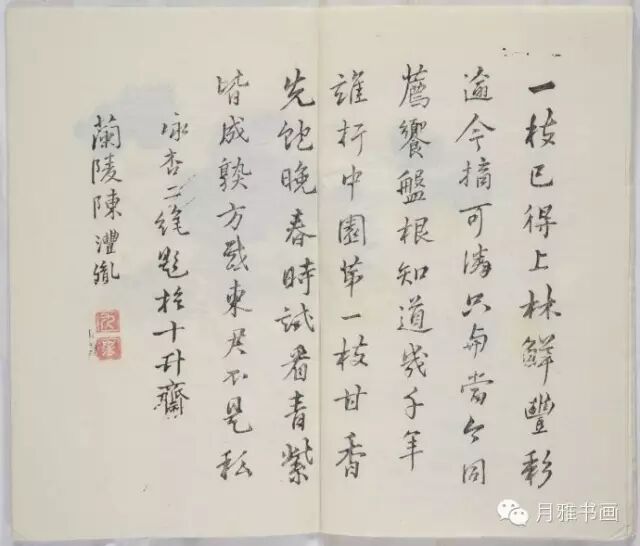 一枝已得上林鮮豐彩
逾今摘可誇只
當今同
薦饗盤根知道幾千年
誰折中園第一枝甘香
先飽晚春時試看青紫
皆成孰方感東君不是私
詠杏二絕題於十升齋
蘭陵陳澧胤
月雅书画